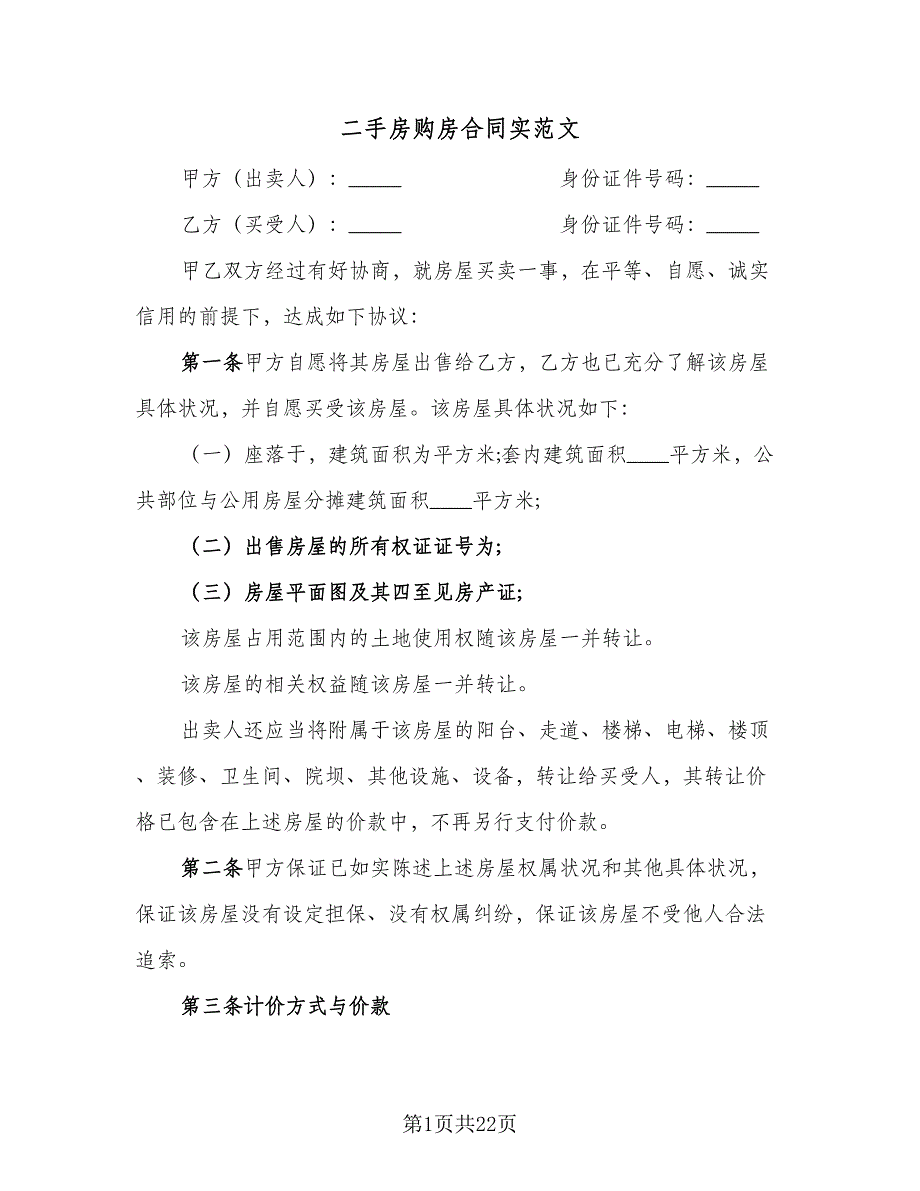 二手房购房合同实范文
甲方（出卖人）：_____ 身份证件号码：_____
乙方（买受人）：_____ 身份证件号码：_____
甲乙双方经过有好协商，就房屋买卖一事，在平等、自愿、诚实
信用的前提下，达成如下协议：
第一条甲方自愿将其房屋出售给乙方，乙方也已充分了解该房屋
具体状况，并自愿买受该房屋。该房屋具体状况如下：
（一）座落于，建筑面积为平方米;套内建筑面积____平方米，公
共部位与公用房屋分摊建筑面积____平方米;
（二）出售房屋的所有权证证号为;
（三）房屋平面图及其四至见房产证;
该房屋占用范围内的土地使用权随该房屋一并转让。
该房屋的相关权益随该房屋一并转让。
出卖人还应当将附属于该房屋的阳台、走道、楼梯、电梯、楼顶
、装修、卫生间、院坝、其他设施、设备，转让给买受人，其转让价
格已包含在上述房屋的价款中，不再另行支付价款。
第二条甲方保证已如实陈述上述房屋权属状况和其他具体状况，
保证该房屋没有设定担保、没有权属纠纷，保证该房屋不受他人合法
追索。
第三条计价方式与价款
第1页共22页